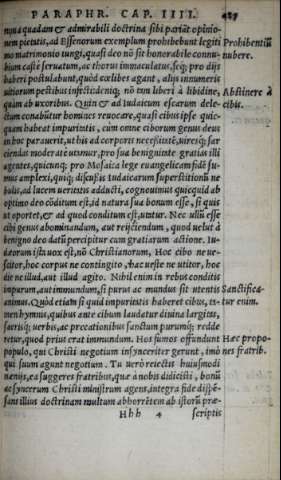 PARAPHR. CAP. IIII.
nqua quadam & admirabili doctrina sibi pariāt opinio-
nem pietatis, ad Essenorum exemplum prohibebunt legiti
Prohibentiū
mo matrimonio iungi, quasi deo nō sit honorabile connu-
nubere.
bium castè seruatum, ac thorus immaculatus, seq; pro dijs
haberi postulabunt, quòd cœlibes agant, alijs innumeris
uitiorum pestibus infecti: denic; nō tam liberi à libidine,
Abstinere à
quàm ab uxoribus. Quin & ad Iudaicum escarum dele-
cibis.
ctum conabūtur homines reuocare, quasi cibus ipse quic-
quam habeat impuritatis, cùm omne ciborum genus deus
in hoc parauerit, ut his ad corporis necessitatē, uires q; sar
ciendas moderatè utamur, pro sua benignitate gratias illi
agentes, quicunq; pro Mosaica lege euangelicam fidē su-
mus amplexi, quiq; discussis Iudaicarum superstitionū ne
bulis, ad lucem ueritatis adducti, cognouimus quicquid ab
optimo deo cōditum est, id natura sua bonum esse, si quis
ut oportet, & ad quod conditum est, utatur. Nec ullū esse
cibi genus abominandum, aut reijciendum, quod uelut à
benigno deo datū percipitur cum gratiarum actione. Iu-
dæorum istæ uox est, nō Christianorum, Hoc cibo ne ue-
scitor, hoc corpus ne contingito, hac ueste ne utitor, hoc
die ne illud, aut illud agito. Nihil enim in rebus conditis
impurum, aut immundum, si purus ac mundus sit utentis
Sanctifica-
animus. Quòd etiam si quid impuritatis haberet cibus, ta-
tur enim.
men hymnus, quibus ante cibum laudatur diuina largitas,
sacrisq; uerbis, ac precationibus sanctum purumq; redde
retur, quod prius erat immundum. Hos fumos offundunt
Hæc propo-
populo, qui Christi negotium insynceriter gerunt, imò
nes fratrib.
qui suum agunt negotium. Tu uerò reiectis huiusmodi
nænijs, ea suggeres fratribus, quæ à nobis didicisti, bonū
ac syncerum Christi ministrum agens, integra fide dispē-
sans illius doctrinam multum abhorrētem ab istorū præ-
Hhh 4
scriptis